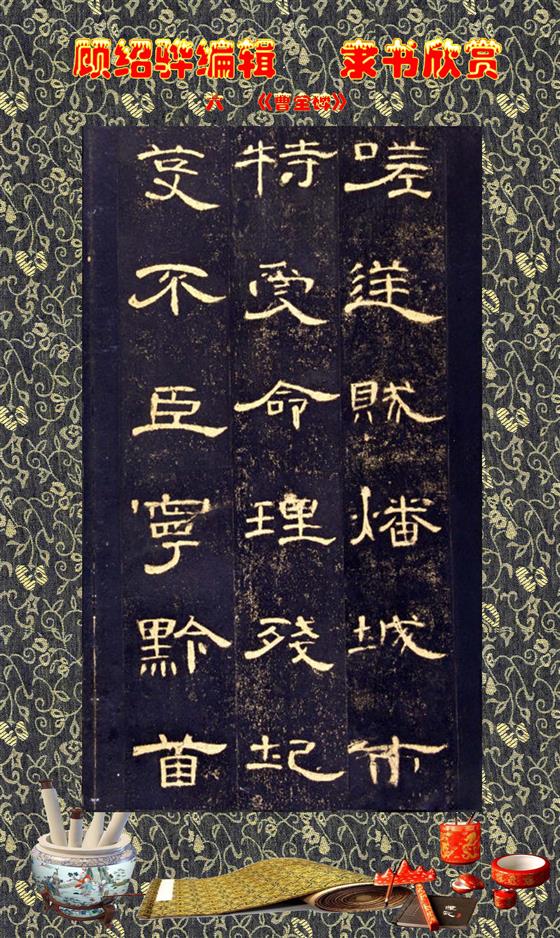 顾绍骅编辑 隶书欣赏
六 《曹全碑》
嗟逆賊燔城市
特受命理殘圮
芟不臣寧黔首